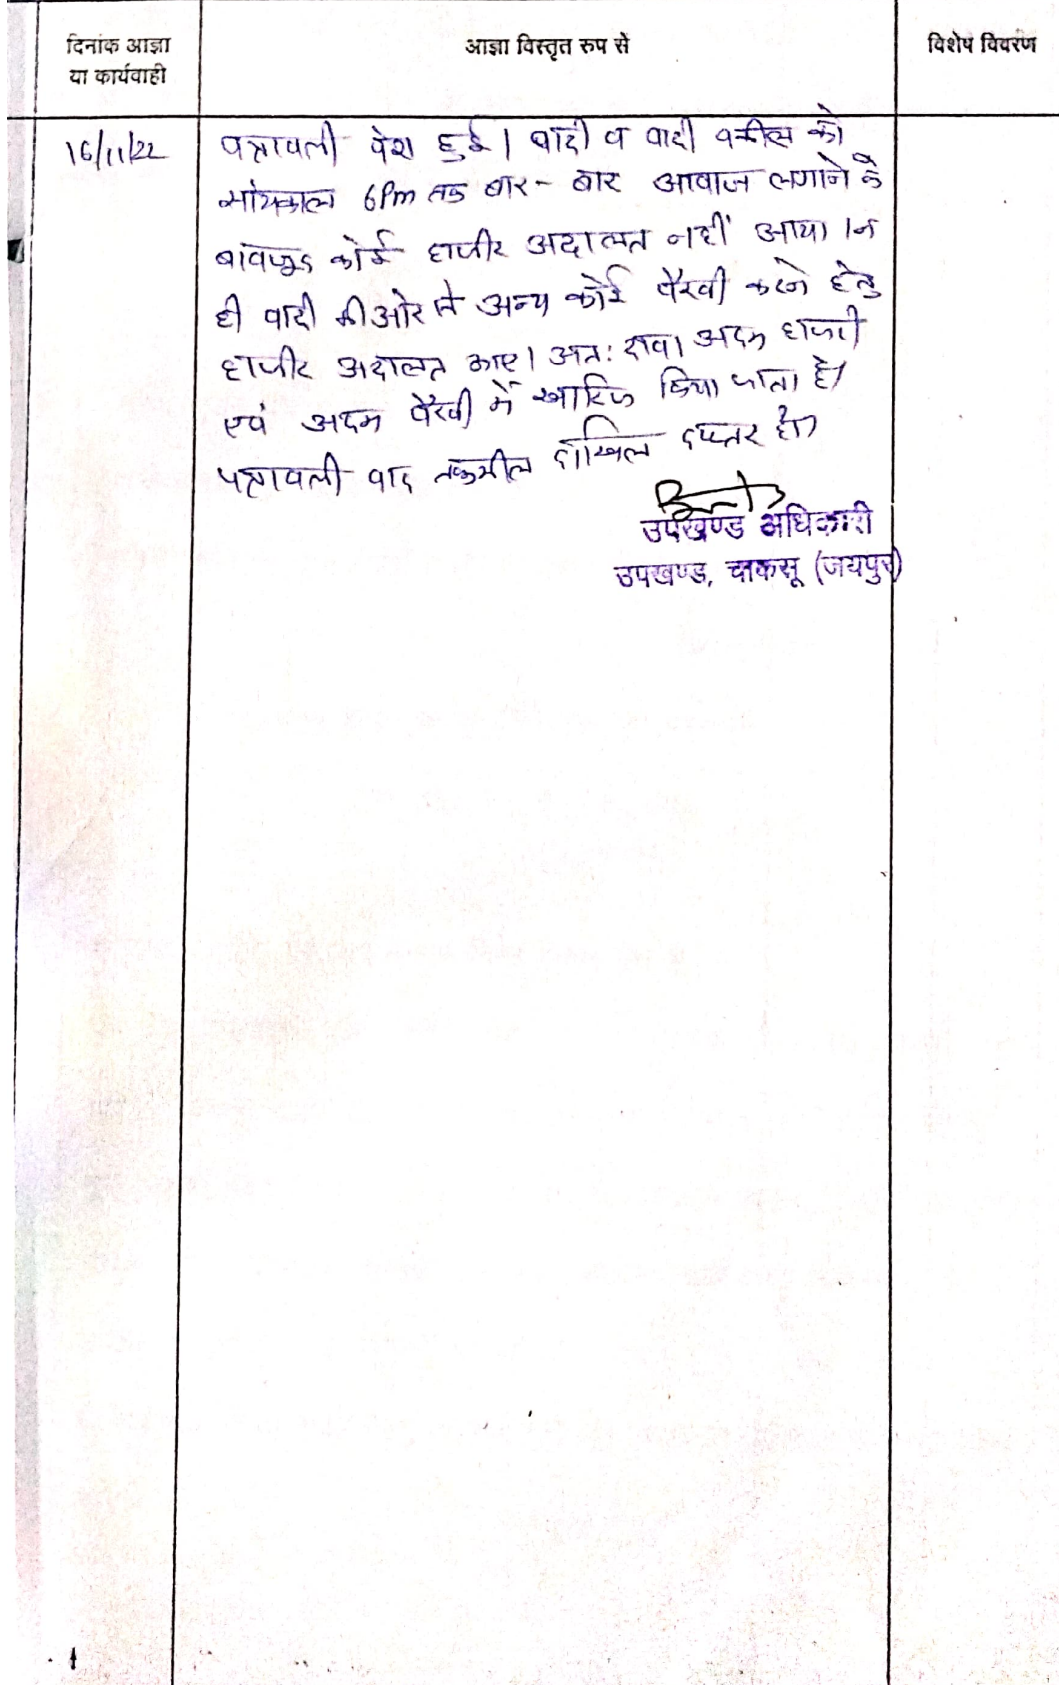 दिनांक आज्ञा
या कार्यवाही
आज्ञा विस्तृत रुप से
विशेष विवरण
16/11/22
पत्रावली पेश हुई। वादी व वादी वकील को
सांयकाल 6Pm तक बार- बार आवाज लगाने के
बावजूद कोई हाजीर अदालत नहीं आया। न
ही वादी की ओर से अन्य कोई पैरवी करने हेतु
हाजीर अदालत आए। अत: दावा अदम हाजरी
एवं अदम पैरवी में खारिज किया जाता है।
पत्रावली बाद तकमील दाखिल दफ्तर हो।
उपखण्ड अधिकारी
उपखण्ड, चाकसू (जयपुर)